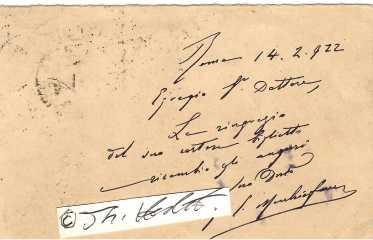 Roma 14.2.922
Egregio Sr. Dottore,
La ringrazio
del suo cortese biglietto
ricambio gli auguri
Suo Dev
©